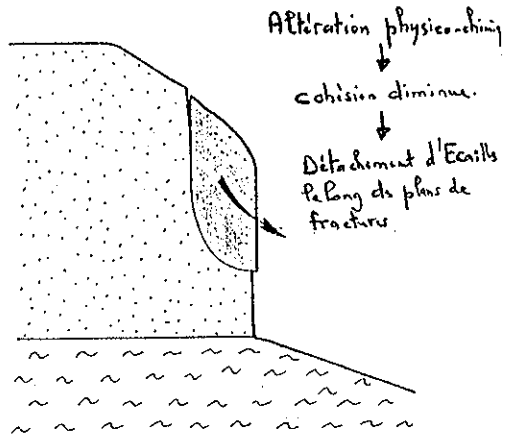 Altération physico-chimiq
cohésion diminue.
Détachement d'Ecailles
le long des plans de
fractures